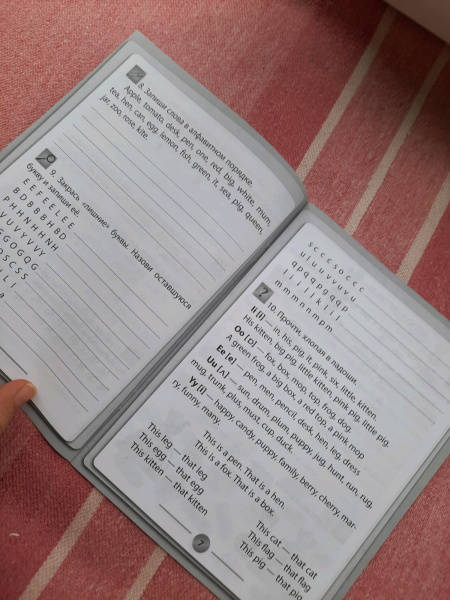 8. Запиши слова в алфавитном порядке.
Apple, tomato, desk, pen, one, red, big, white, mum,
tea, hen, can, egg, lemon, fish, green, it, sea, pig, queen,
jar, zoo, rose, kite.
9. Закрась «лишние» буквы. Назови оставшуюся
букву и запиши её.
E E F E E L E E
B D B B B H B D
P H H N H H N H
V V Y V V Y
G O G Q G
s c c c s o c c c
u j u u v v u v u
q p q p q g q q p
m m m n m p m
2
10. Прочти, хлопая в ладоши.
Ii [i] — in, his, pig, it, pink, six, little, kitten.
His kitten, big pig, little kitten, pink pig, little pig.
Oo [ɒ] — fox, box, mop, top, frog, dog
A green frog, a big box, a red top, a pink mop
Ee [e] — pen, men, pencil, desk, hen, leg, dress
Uu [ʌ] — sun, drum, plum, puppy, jug, hunt, run, rug,
mug, trunk, plus, must, cup, duck.
Yy [i] — happy, candy, puppy, family, berry, cherry, mar-
ry, funny, many.
This is a pen. That is a hen.
This is a fox. That is a box.
This leg — that leg
This egg — that egg
This kitten — that kitten
This cat — that cat
This flag — that flag
This pig — that pig
7